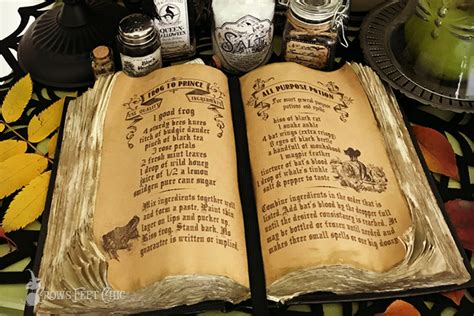 FROG TO PRINCE
QUALITY INGREDIENTS
1 good frog
4 sturdy bees knees
titch of budgie dander
pinch of black tea
3 rose petals
2 fresh mint leaves
1 drop of wild honey
juice of 1/2 a lemon
smidgen pure cane sugar
Mix ingredients together well
and form a paste. Paint thin
layer on lips and pucker up.
Kiss frog. Stand back. No
guarantee is written or implied.
ALL PURPOSE POTION
For most general purpose
potions and spells
kiss of black cat
1 snake ankle
4 bat wings (extra crispy)
8 ebony cat whiskers
a handfull of monkshood
1 magpie feather
tincture of bat's blood
1 drop of whale's tickle
salt & pepper to taste
Combine ingredients in the order that is
listed. Add bat's blood by the dropper full
until the desired consistency is reached.
may be bottled or frozen until needed. It
makes three small spells or one big doozy
CROWS FEET CHIC